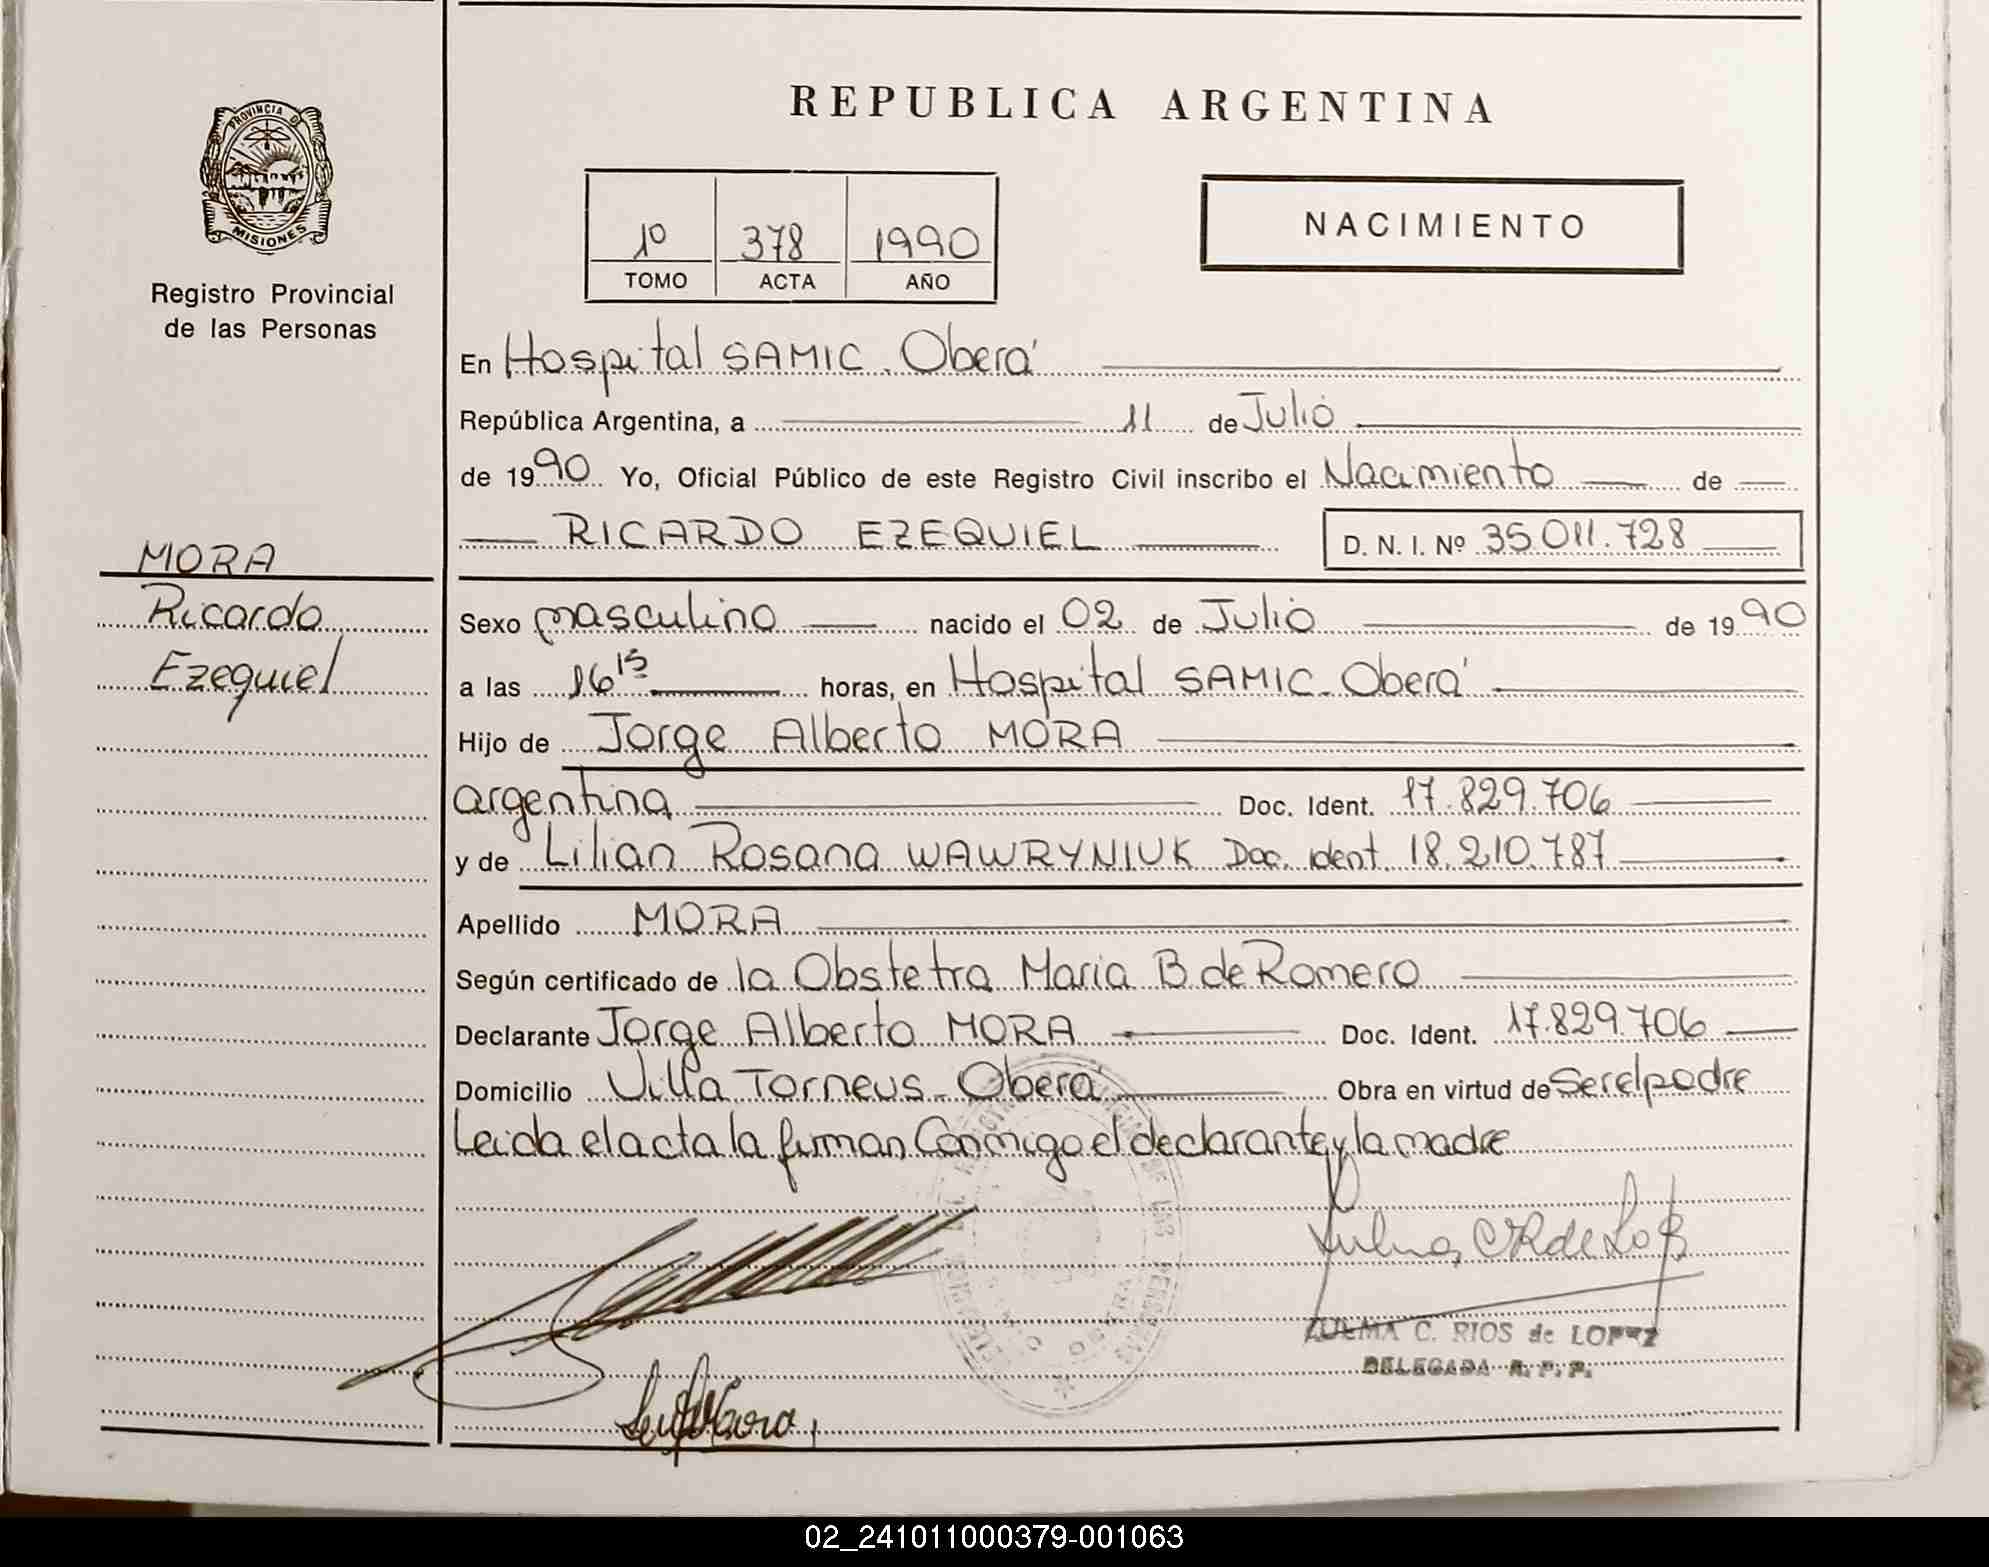 REPUBLICA ARGENTINA
PROVINCIA DE
MISIONES
Registro Provincial
de las Personas
1º 378 1990
TOMO ACTA AÑO
NACIMIENTO
En Hospital SAMIC. Oberá
República Argentina, a 11 de Julio
de 1990 Yo, Oficial Público de este Registro Civil inscribo el Nacimiento de
RICARDO EZEQUIEL D. N. I. Nº 35.011.728
MORA
Ricardo
Ezequiel
Sexo masculino nacido el 02 de Julio de 1990
a las 16 15 horas, en Hospital SAMIC. Oberá
Hijo de Jorge Alberto MORA
argentina Doc. Ident. 17.829.706
y de Lilian Rosana WAWRYNIUK Doc. ident 18.210.787
Apellido MORA
Según certificado de la Obstetra Maria B. de Romero
Declarante Jorge Alberto MORA Doc. Ident. 17.829.706
Domicilio Villa Torneus. Oberá Obra en virtud de Ser el padre
Leida el acta la firman Conmigo el declarante y la madre
ZULMA C. RIOS de LOPEZ
DELEGADA R. P. P.
02_241011000379-001063